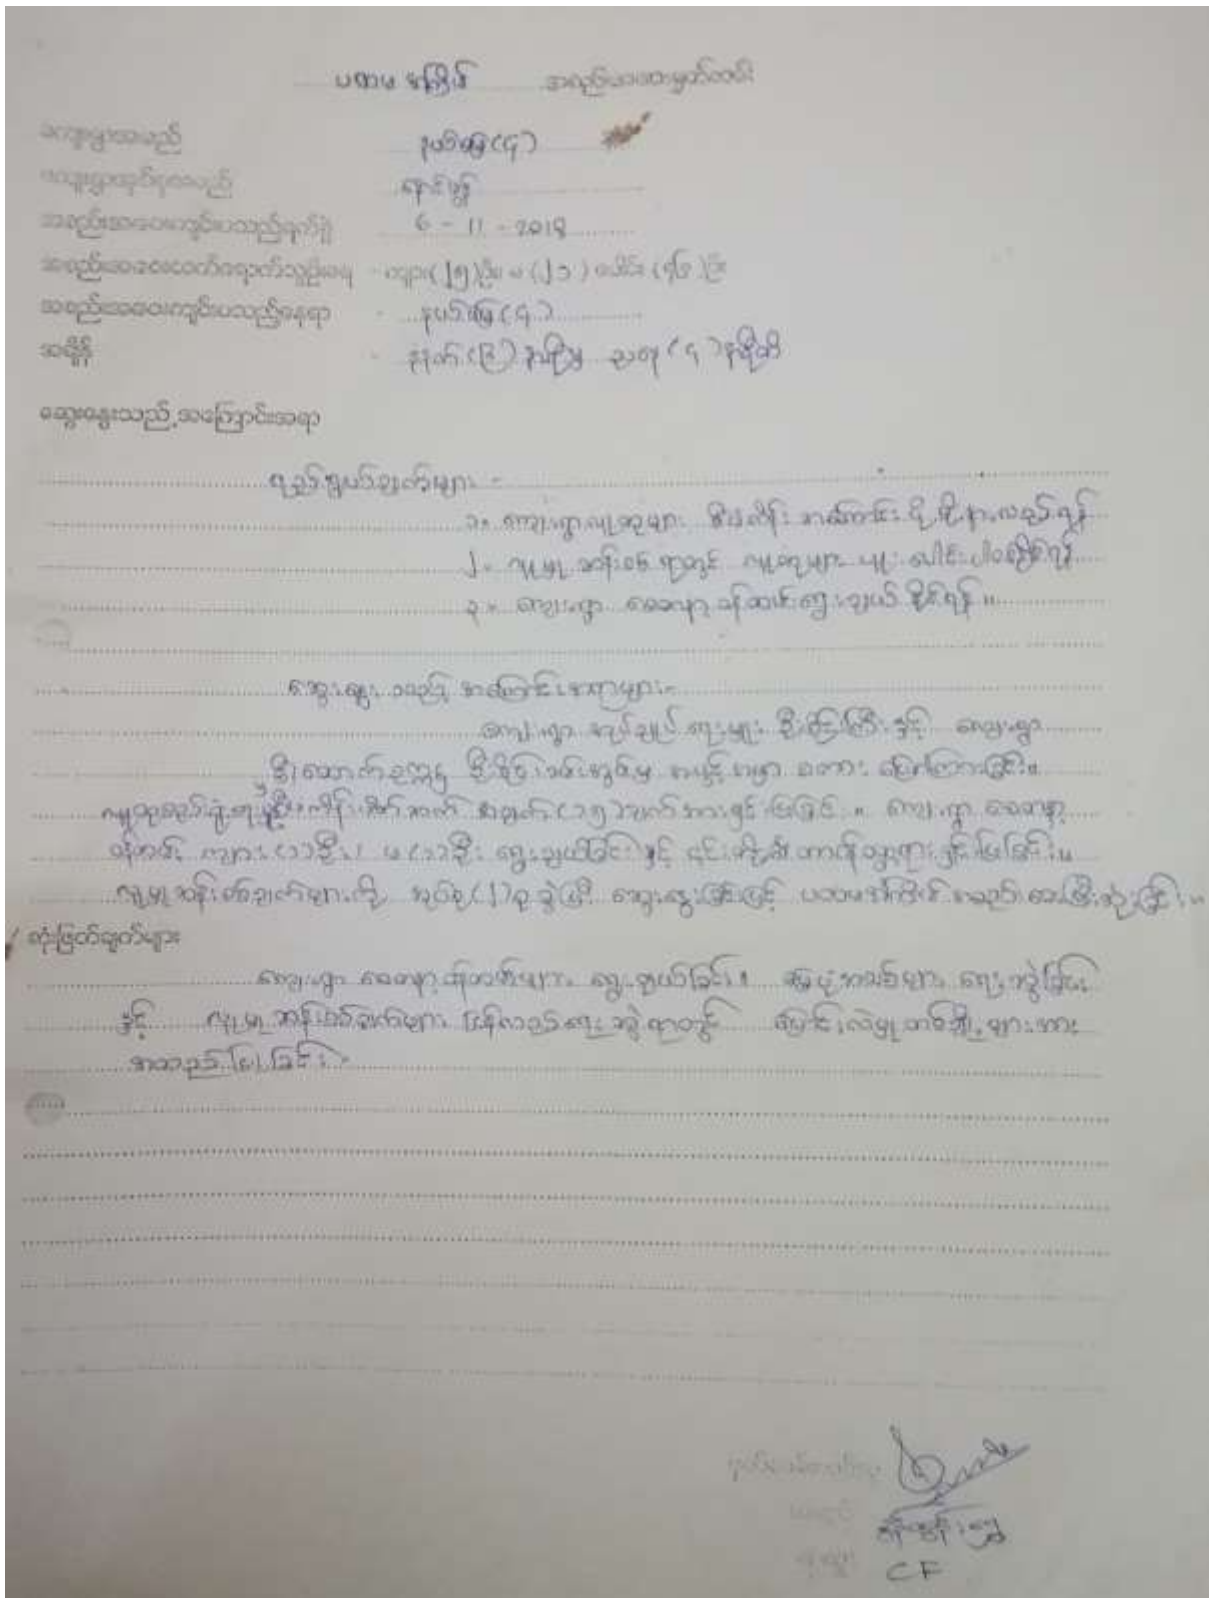 ပထမ အကြိမ် အစည်းအဝေးမှတ်တမ်း
ကျေးရွာအမည် နယ်မြေ(၄)
ကျေးရွာအုပ်စုအမည် နောင်မွန်
အစည်းအဝေးကျင်းပသည့်ရက်စွဲ 6 - 11 - 2018
အစည်းအဝေးတက်ရောက်သူဦးရေ ကျား(၂၅)ဦး မ (၂၁) ပေါင်း (၄၆)ဦး
အစည်းအဝေးကျင်းပသည့်နေရာ - နယ်မြေ(၄)
အချိန် - နံနက်(၉)နာရီမှ ညနေ(၄)နာရီထိ
ဆွေးနွေးသည့်အကြောင်းအရာ
ရည်ရွယ်ချက်များ -
၁။ ကျေးရွာလူထုများ စီမံကိန်း အကြောင်း ပိုမိုနားလည်ရန်
၂။ လူမှုဆန်းစစ်ရာတွင် လူထုများ ပူးပေါင်းပါဝင်နိုင်ရန်
၃။ ကျေးရွာ စေတနာ့ဝန်ထမ်းရွေးချယ်နိုင်ရန်။
ဆွေးနွေးသည့် အကြောင်းအရာများ-
ကျေးရွာ အုပ်ချုပ်ရေးမှူး နှင့် ကျေးရွာ
အဖွင့်အမှာ စကား ပြောကြားခြင်း။
အချက်(၁၅)ချက်အားရှင်းပြခြင်း။ ကျေးရွာ စေတနာ့
ဝန်ထမ်း ကျား(၁)ဦး၊ မ(၁)ဦး ရွေးချယ်ခြင်းနှင့် ၎င်းတို့၏တာဝန်ဝတ္တရားရှင်းပြခြင်း။
လူမှုဆန်းစစ်ချက်များကို အုပ်စု(၂)စုခွဲပြီး ဆွေးနွေးခြင်းဖြင့် ပထမအကြိမ် အစည်းအဝေးပြီးဆုံးခြင်း။
ဆုံးဖြတ်ချက်များ
ကျေးရွာ စေတနာ့ဝန်ထမ်းများ ရွေးချယ်ခြင်း။ မြေပုံအသစ်များ ရေးဆွဲခြင်း
နှင့် လူမှုဆန်းစစ်ချက်များ ပြန်လည်ရေးဆွဲရာတွင် ပြောင်းလဲမှုတစ်ချို့များအား
အတည်ပြုခြင်း။
CF